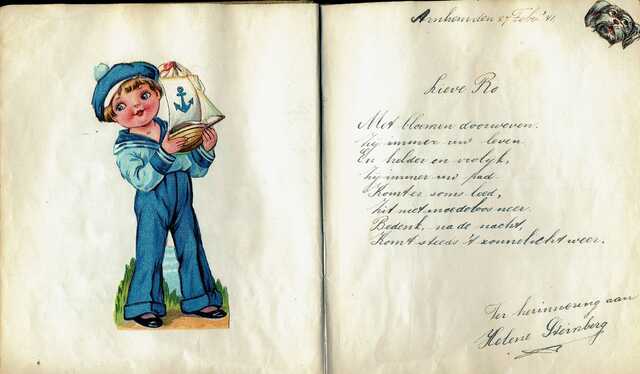 Arnhem den 27 Febr '41
Lieve Ro
Met bloemen doorweven.
Zij immer uw leven.
En helder en vrolijk,
Zij immer uw pad
Komt er soms leed,
Zit niet moedeloos neer.
Bedenk, na de nacht,
Komt steeds 't zonnelicht weer.
Ter herinnering aan
Helene Steinberg